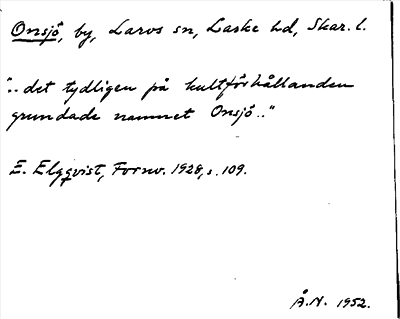 Onsjö, by, Larvs sn, Laske hd, Skar. l.
"..det tydligen på kultförhållanden
grundade namnet Onsjö.."
E. Elgqvist, Fornv. 1928, s. 109.
Å.N. 1952.